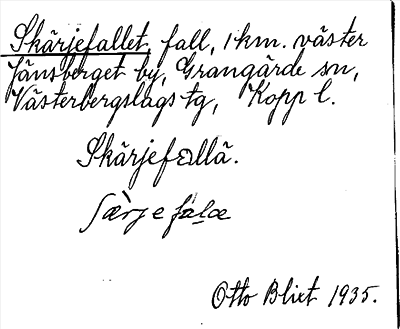 Skärjefallet, fall, 1 km. väster
Jänsberget by, Grangärde sn,
Västerbergslags tg, Kopp l.
Skärjefallä.
Otto Blixt 1935.